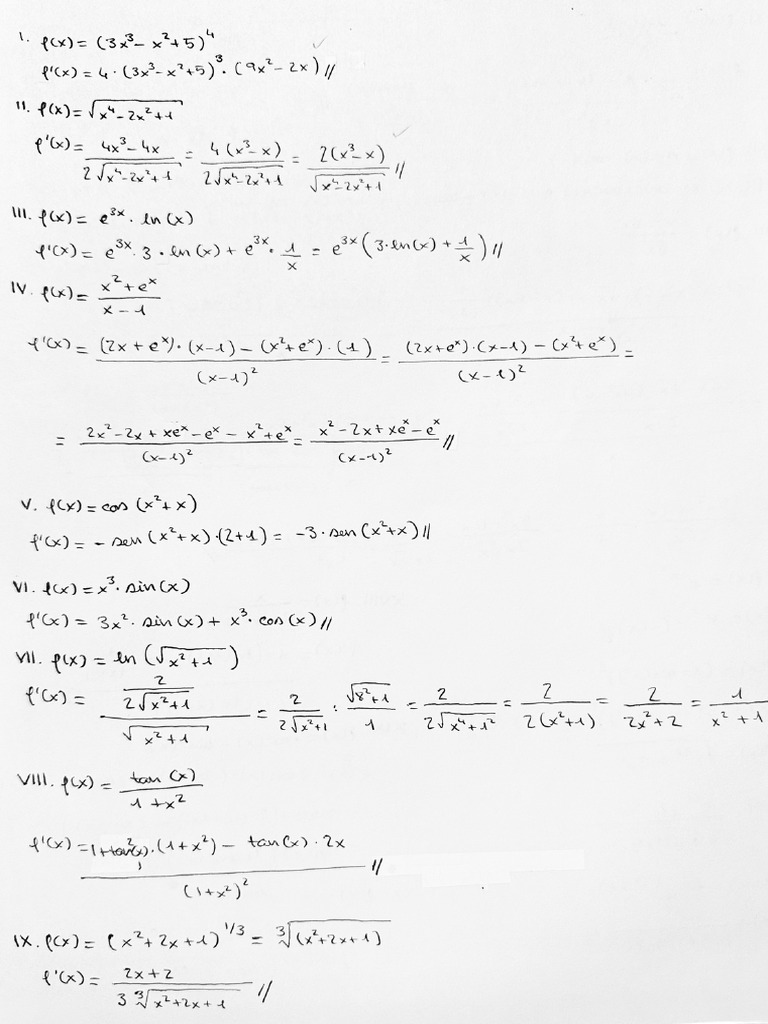 I. f(x) = (3x³ - x² + 5)⁴
f'(x) = 4 · (3x³ - x² + 5)³ · (9x² - 2x) //
II. f(x) = √(x⁴ - 2x² + 1)
f'(x) = (4x³ - 4x)/(2√(x⁴ - 2x² + 1)) = 4(x³ - x)/(2√(x⁴ - 2x² + 1)) = 2(x³ - x)/√(x⁴ - 2x² + 1) //
III. f(x) = e³ˣ · ln(x)
f'(x) = e³ˣ · 3 · ln(x) + e³ˣ · 1/x = e³ˣ (3 · ln(x) + 1/x) //
IV. f(x) = (x² + eˣ)/(x - 1)
f'(x) = ((2x + eˣ) · (x - 1) - (x² + eˣ) · (1))/(x - 1)² = ((2x + eˣ) · (x - 1) - (x² + eˣ))/(x - 1)² =
= (2x² - 2x + xeˣ - eˣ - x² + eˣ)/(x - 1)² = (x² - 2x + xeˣ - eˣ)/(x - 1)² //
V. f(x) = cos(x² + x)
f'(x) = - sen(x² + x) · (2 + 1) = -3 · sen(x² + x) //
VI. f(x) = x³ · sin(x)
f'(x) = 3x² · sin(x) + x³ · cos(x) //
VII. f(x) = ln(√(x² + 1))
f'(x) = (2/(2√(x² + 1)))/√(x² + 1) = 2/(2√(x² + 1)) : √(8² + 1)/1 = 2/(2√(x⁴ + 1²)) = 2/(2(x² + 1)) = 2/(2x² + 2) = 1/(x² + 1)
VIII. f(x) = tan(x)/(1 + x²)
f'(x) = (1 + tan²(x) · (1 + x²) - tan(x) · 2x)/(1 + x²)² //
IX. f(x) = (x² + 2x + 1)^1/3 = ∛(x² + 2x + 1)
f'(x) = (2x + 2)/(3∛(x² + 2x + 1)) //